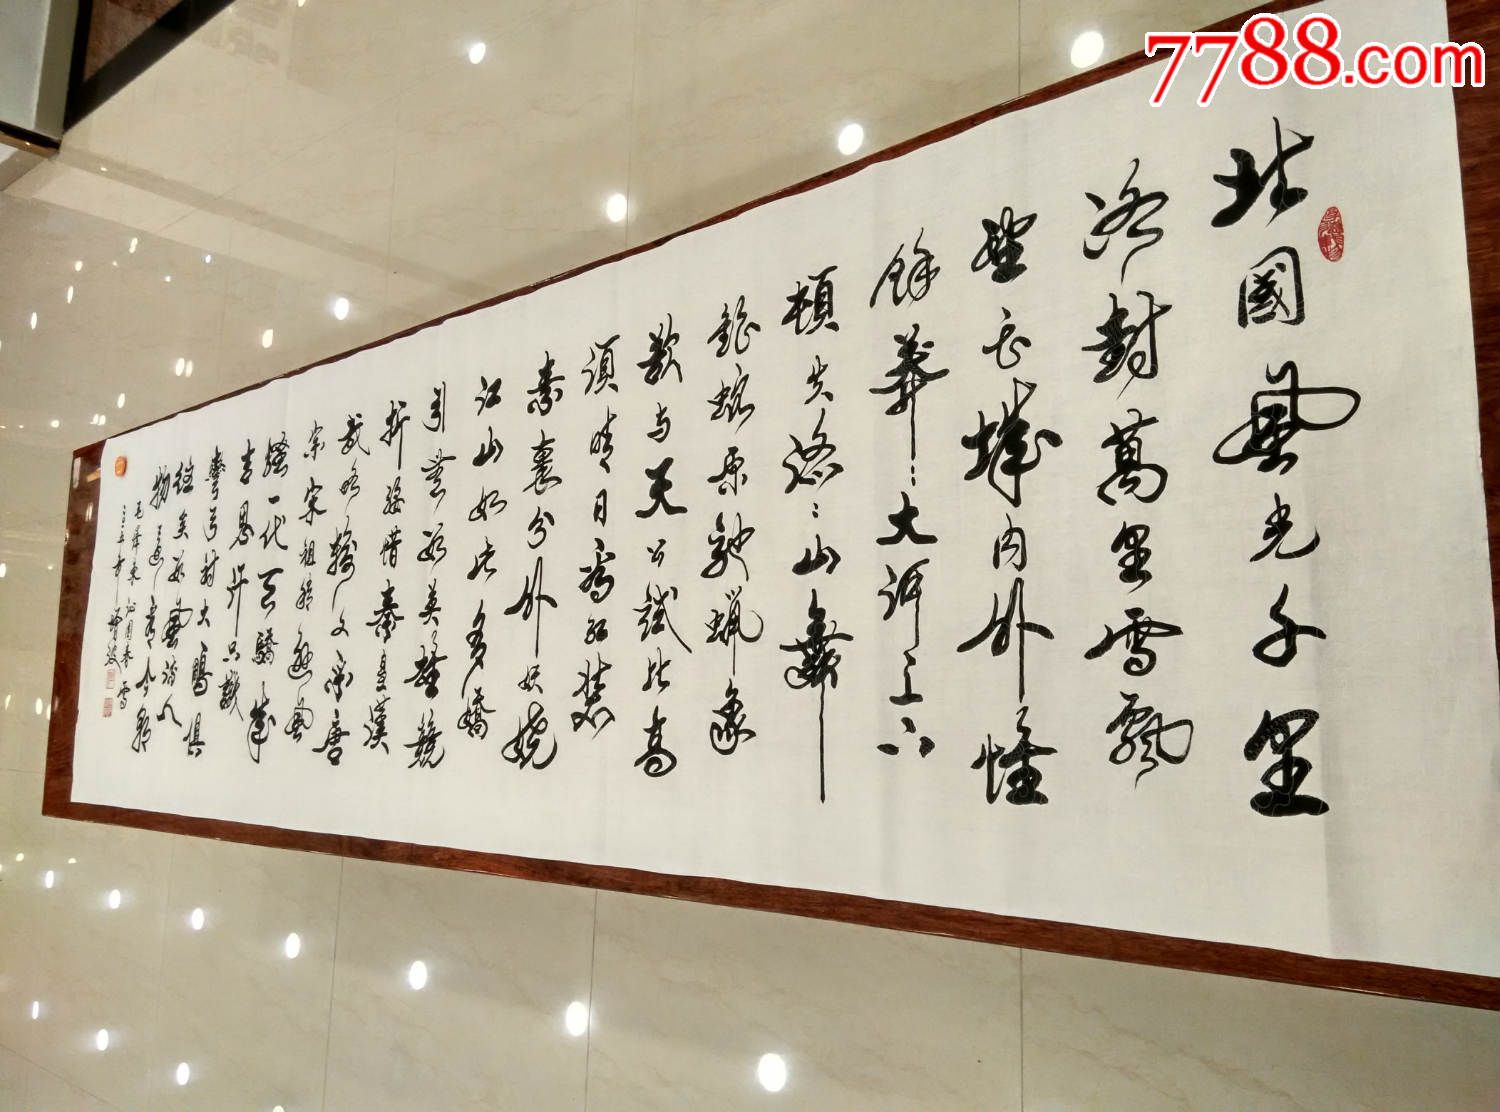 7788.com
北國風光千里
冰封萬里雪飄
望長城內外惟
餘莽莽大河上下
頓失滔滔山舞
銀蛇原馳蠟象
欲與天公試比高
須晴日看紅裝
素裹分外妖嬈
江山如此多嬌
引無數英雄競
折腰惜秦皇漢
武略輸文采唐
宗宋祖稍遜風
騷一代天驕成
吉思汗只識
彎弓射大雕俱
往矣數風流人
物還看今朝
毛澤東沁園春雪